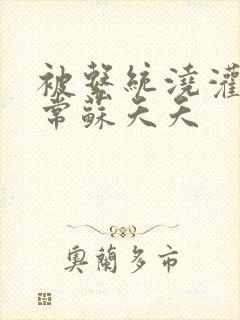 被繫統澆灌
常蘇夭夭
奧蘭多市